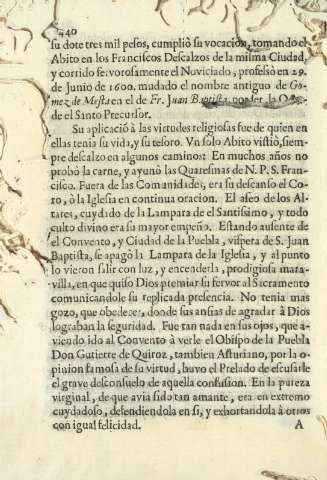 440
su dote tres mil pesos, cumpliò su vocacion, tomando el
Abito en los Franciscos Descalzos de la misma Ciudad,
y corrido fervorosamente el Noviciado, professò en 29.
de Junio de 1600. mudado el nombre antiguo de Go-
mez de Mesta en el de Fr. Juan Baptista, nacer la
de el Santo Precursor.
Su aplicaciò à las virtudes religiosas fue de quien en
ellas tenia su vida, y su tesoro. Vn solo Abito vistiò, siem-
pre descalzo en algunos caminos: En muchos años no
probò la carne, y ayunò las Quaresmas de N. P. S. Fran-
cisco. Fuera de las Comunidades, era su descanso el Co-
ro, ò la Iglesia en continua oracion. El aseo de los Al-
tares, cuydado de la Lampara de el Santissimo, y todo
culto divino era su mayor empeño. Estando ausente de
el Convento, y Ciudad de la Puebla, vispera de S. Juan
Baptista, se apagò la Lampara de la Iglesia, y al punto
lo vieron salir con luz, y encenderla, prodigiosa mara-
villa, en que quiso Dios premiar su fervor al Sacramento
comunicandole su replicada presencia. No tenia mas
gozo, que obedecer, donde sus ansias de agradar à Dios
lograban la seguridad. Fue tan nada en sus ojos, que a-
viendo ido al Convento à verle el Obispo de la Puebla
Don Gutierre de Quiroz, tambien Asturiano, por la o-
pinion famosa de su virtud, huvo el Prelado de escusarle
el grave desconsuelo de aquella confusion. En la pureza
virginal, de que avia sido tan amante, era en extremo
cuydadoso, defendiendola en sí, y exhortandola à otros
con igual felicidad.
A